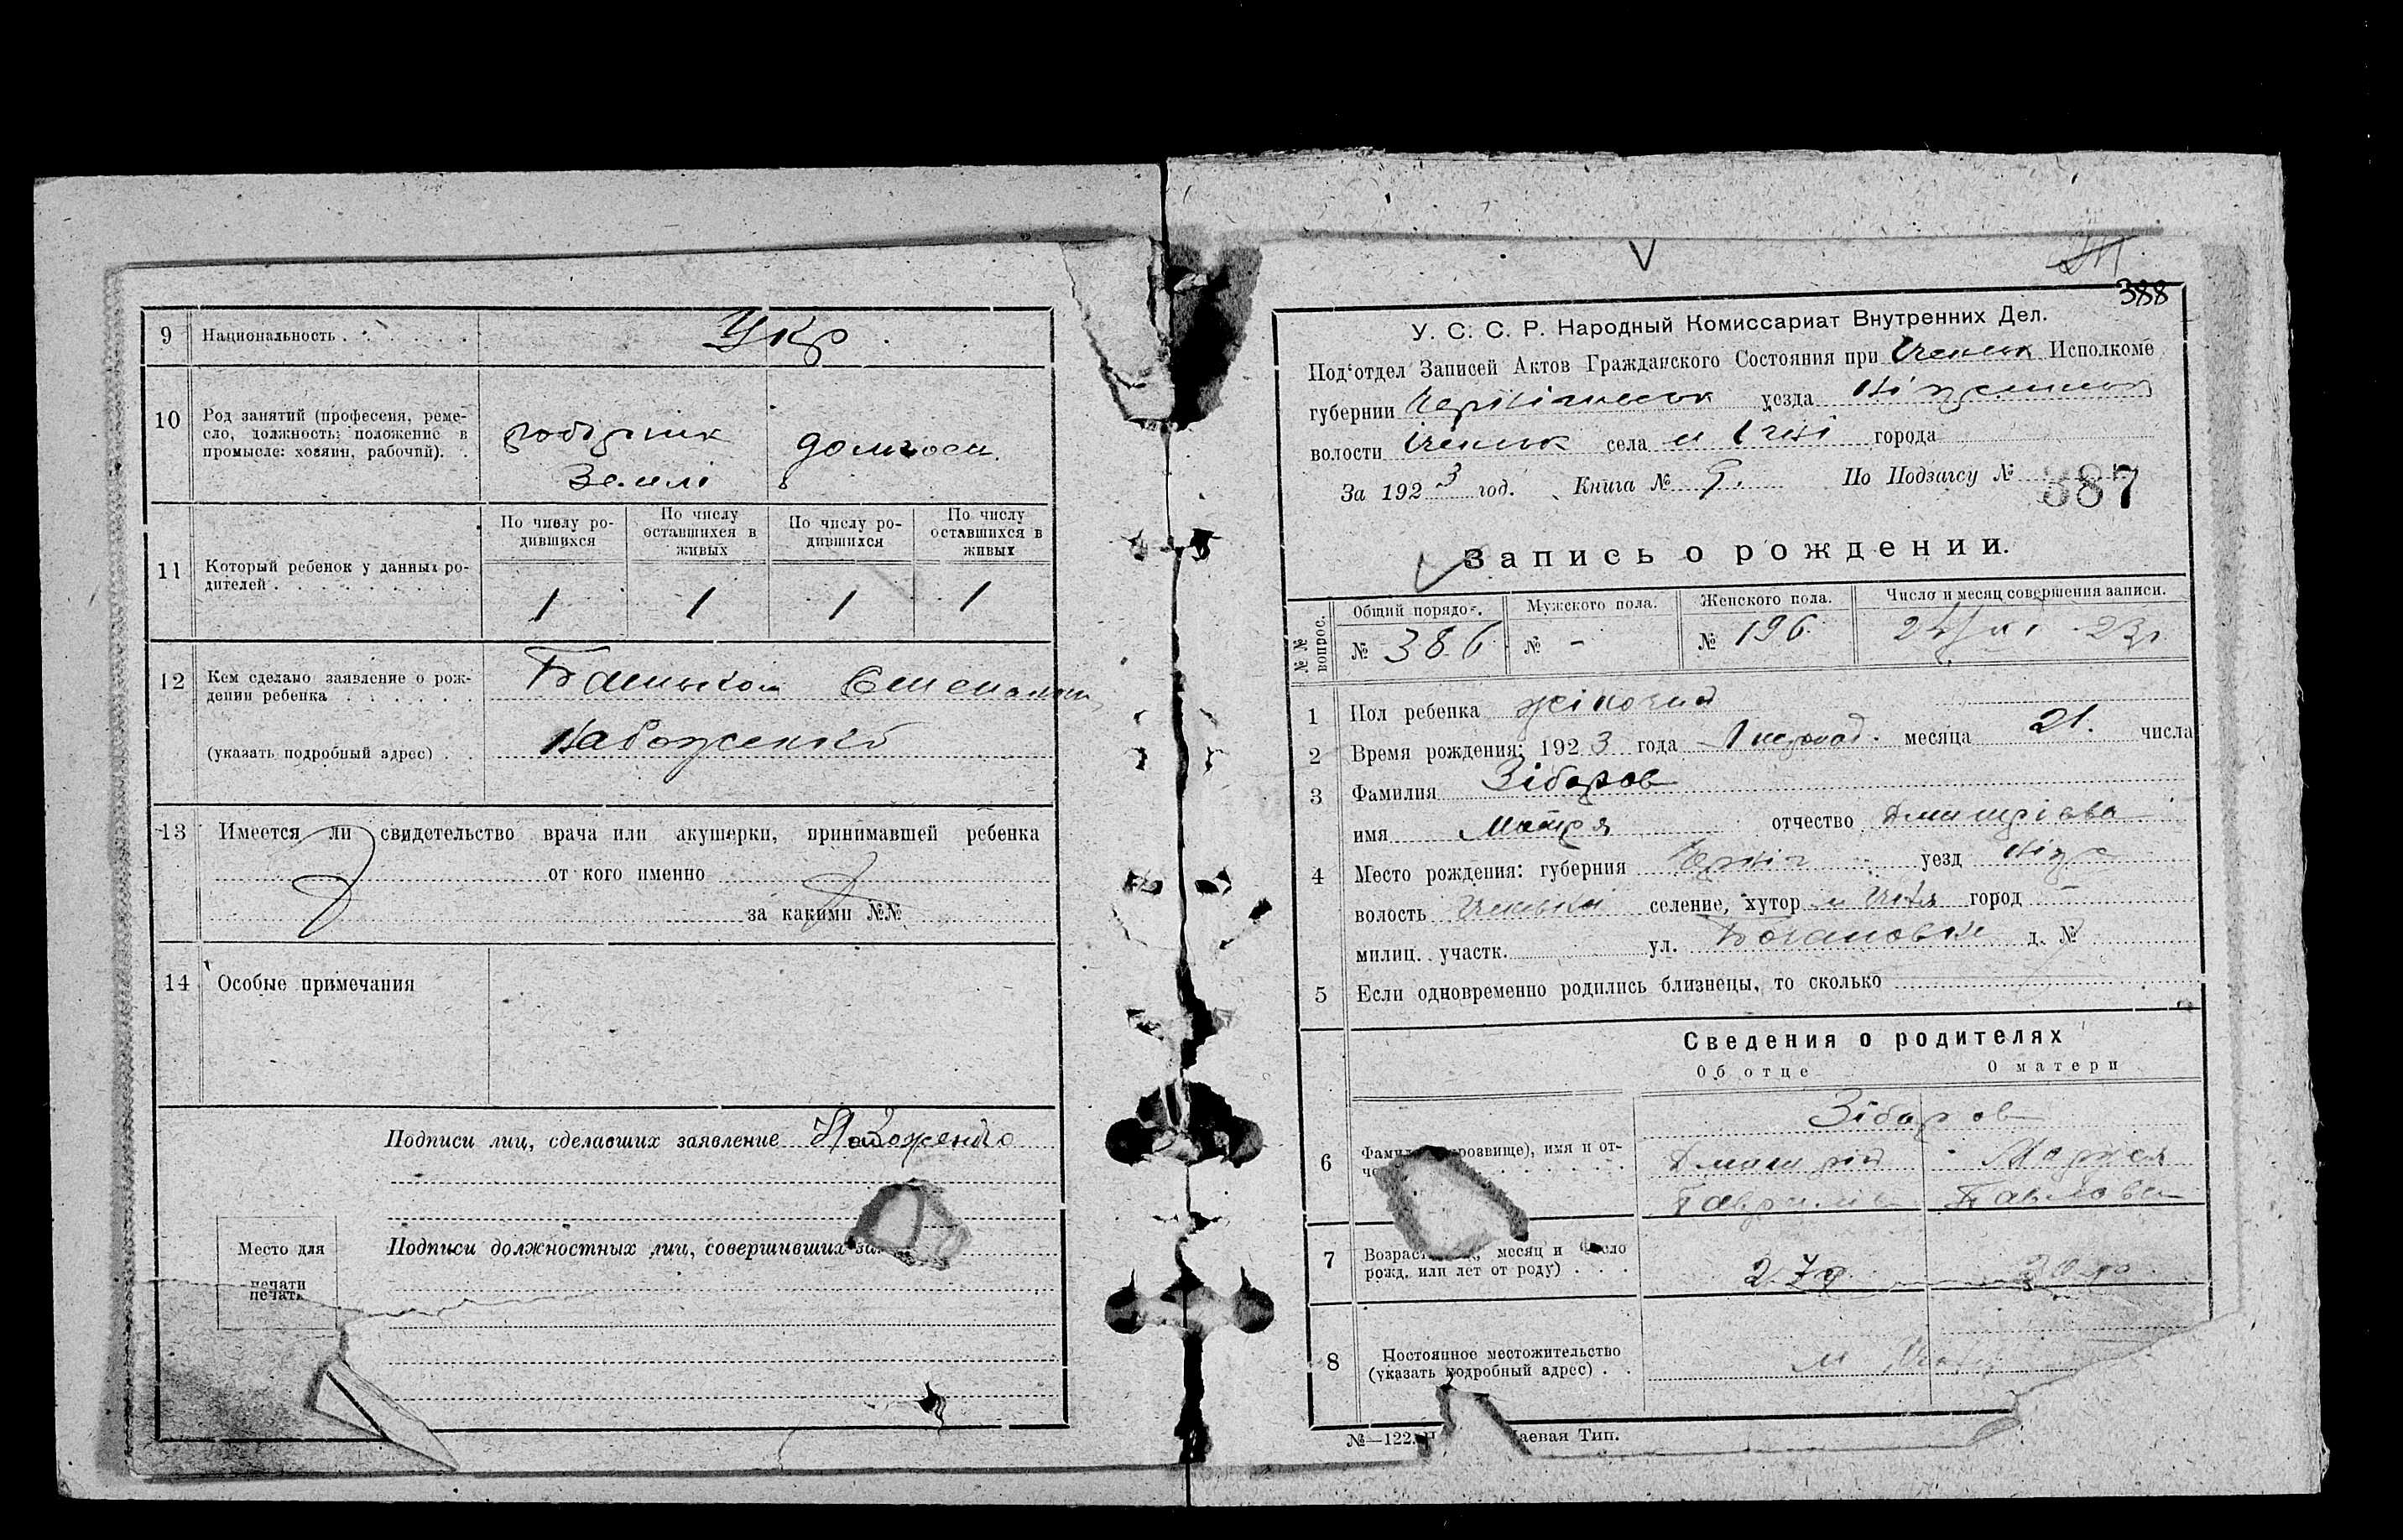 9 Национальность . . . . . . Укр
10 Род занятий (профессия, реме-
сло, должность; положение в
промысле: хозяин, рабочий). .
робітник
землі
домгосп.
По числу ро-
дившихся
По числу
оставшихся в
живых
По числу ро-
дившихся
По числу
оставшихся в
живых
11 Который ребенок у данных ро-
дителей . . . . . . . . .
1 1 1 1
12 Кем сделано заявление о рож-
дении ребенка . . . . . .
Батьком
(указать подробный адрес) . .
Набоженко
13 Имеется ли свидетельство врача или акушерки, принимавшей ребенка
от кого именно
за какими №№
14 Особые примечания
Подписи лиц, сделавших заявление Набоженко
Подписи должностных лиц, совершивших за
Место для
печати
печать
388
У. С. С. Р. Народный Комиссариат Внутренних Дел.
Под‘отдел Записей Актов Гражданского Состояния при Іченськ Исполкоме
губернии Чернігівськ уезда Ніженськ
волости Іченськ села м Ічні города
За 1923 год. Книга № По Подзагсу № 387
Запись о рождении.
№№ вопрос.
Общий порядо-. Мужского пола. Женского пола. Число и месяц совершения записи.
№ 386 № - № 196 24/XI 23р
1 Пол ребенка жіночий
2 Время рождения: 1923 года Листопад. месяца 21. числа
3 Фамилия Зібаров
имя Мотря отчество Дмитрієва
4 Место рождения: губерния Черніг уезд Ніж
волость Іченська селение, хутор м Ічня город -
милиц. участк. ул. д. №
5 Если одновременно родились близнецы, то сколько
Сведения о родителях
Об отце О матери
Зібаров
6 Фами розвище), имя и от-
че
Дмитрій Мария
Гаврилів Павлова
7 Возрас месяц и число
рожд. или лет от роду) . . .
27р. 20 р.
8 Постоянное местожительство
(указать подробный адрес) . .
м Ічня
№—122. аевая Тип.